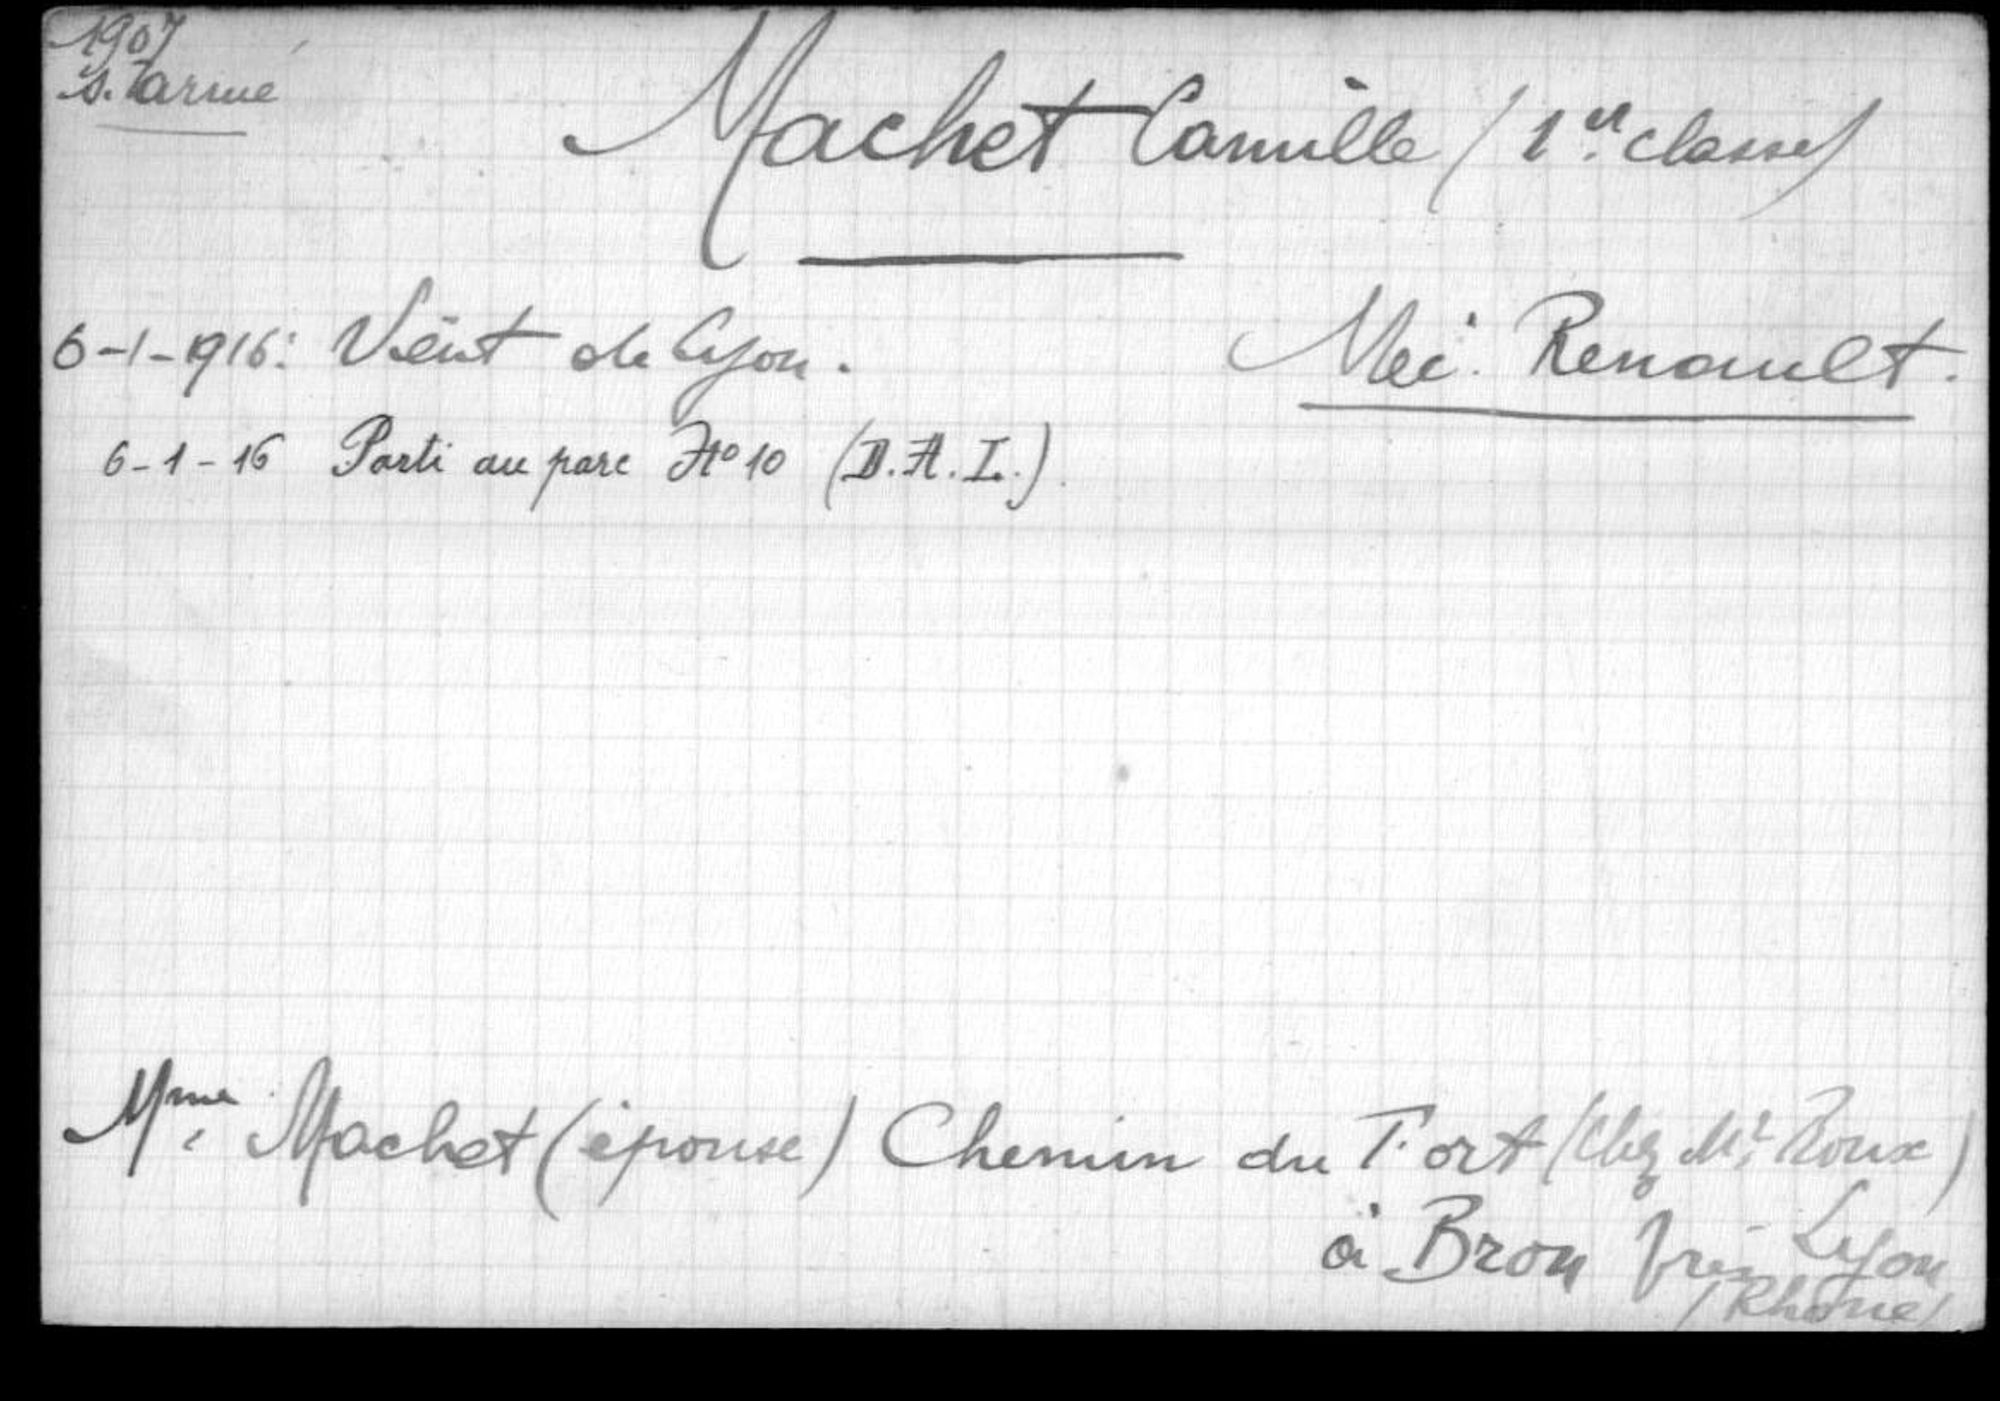 1907
s. l'armé
Machet Camille (1er classe)
6-1-916: Vient de Lyon.
Méc. Renault.
6-1-16 Parti au parc No 10 (D.A.L.)
Mme Machet (épouse) Chemin du Fort (Chez Mr Roux)
à Bron près Lyon
(Rhône)